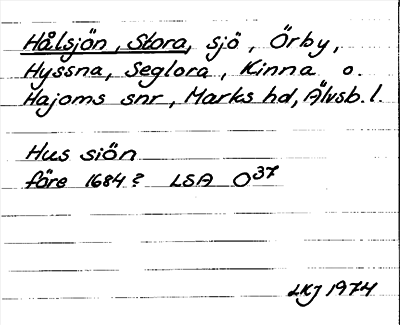 Hålsjön, Stora, sjö, Örby,
Hyssna, Seglora, Kinna o.
Hajoms snr, Marks hd, Älvsb. l.
Hus siön
före 1684? LSA O37
LKJ 1974